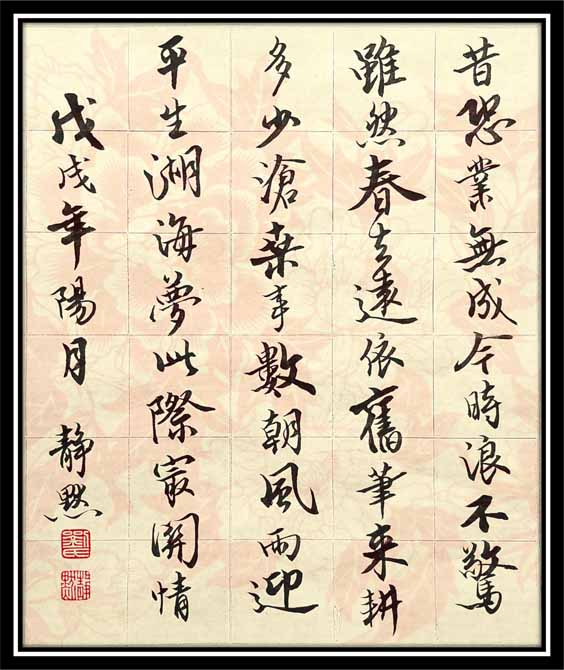 昔恐業無成今時浪不驚
雖然春去遠依舊筆來耕
多少滄桑事數朝風雨迎
平生湖海夢此際最關情
戊戌年陽月 靜默